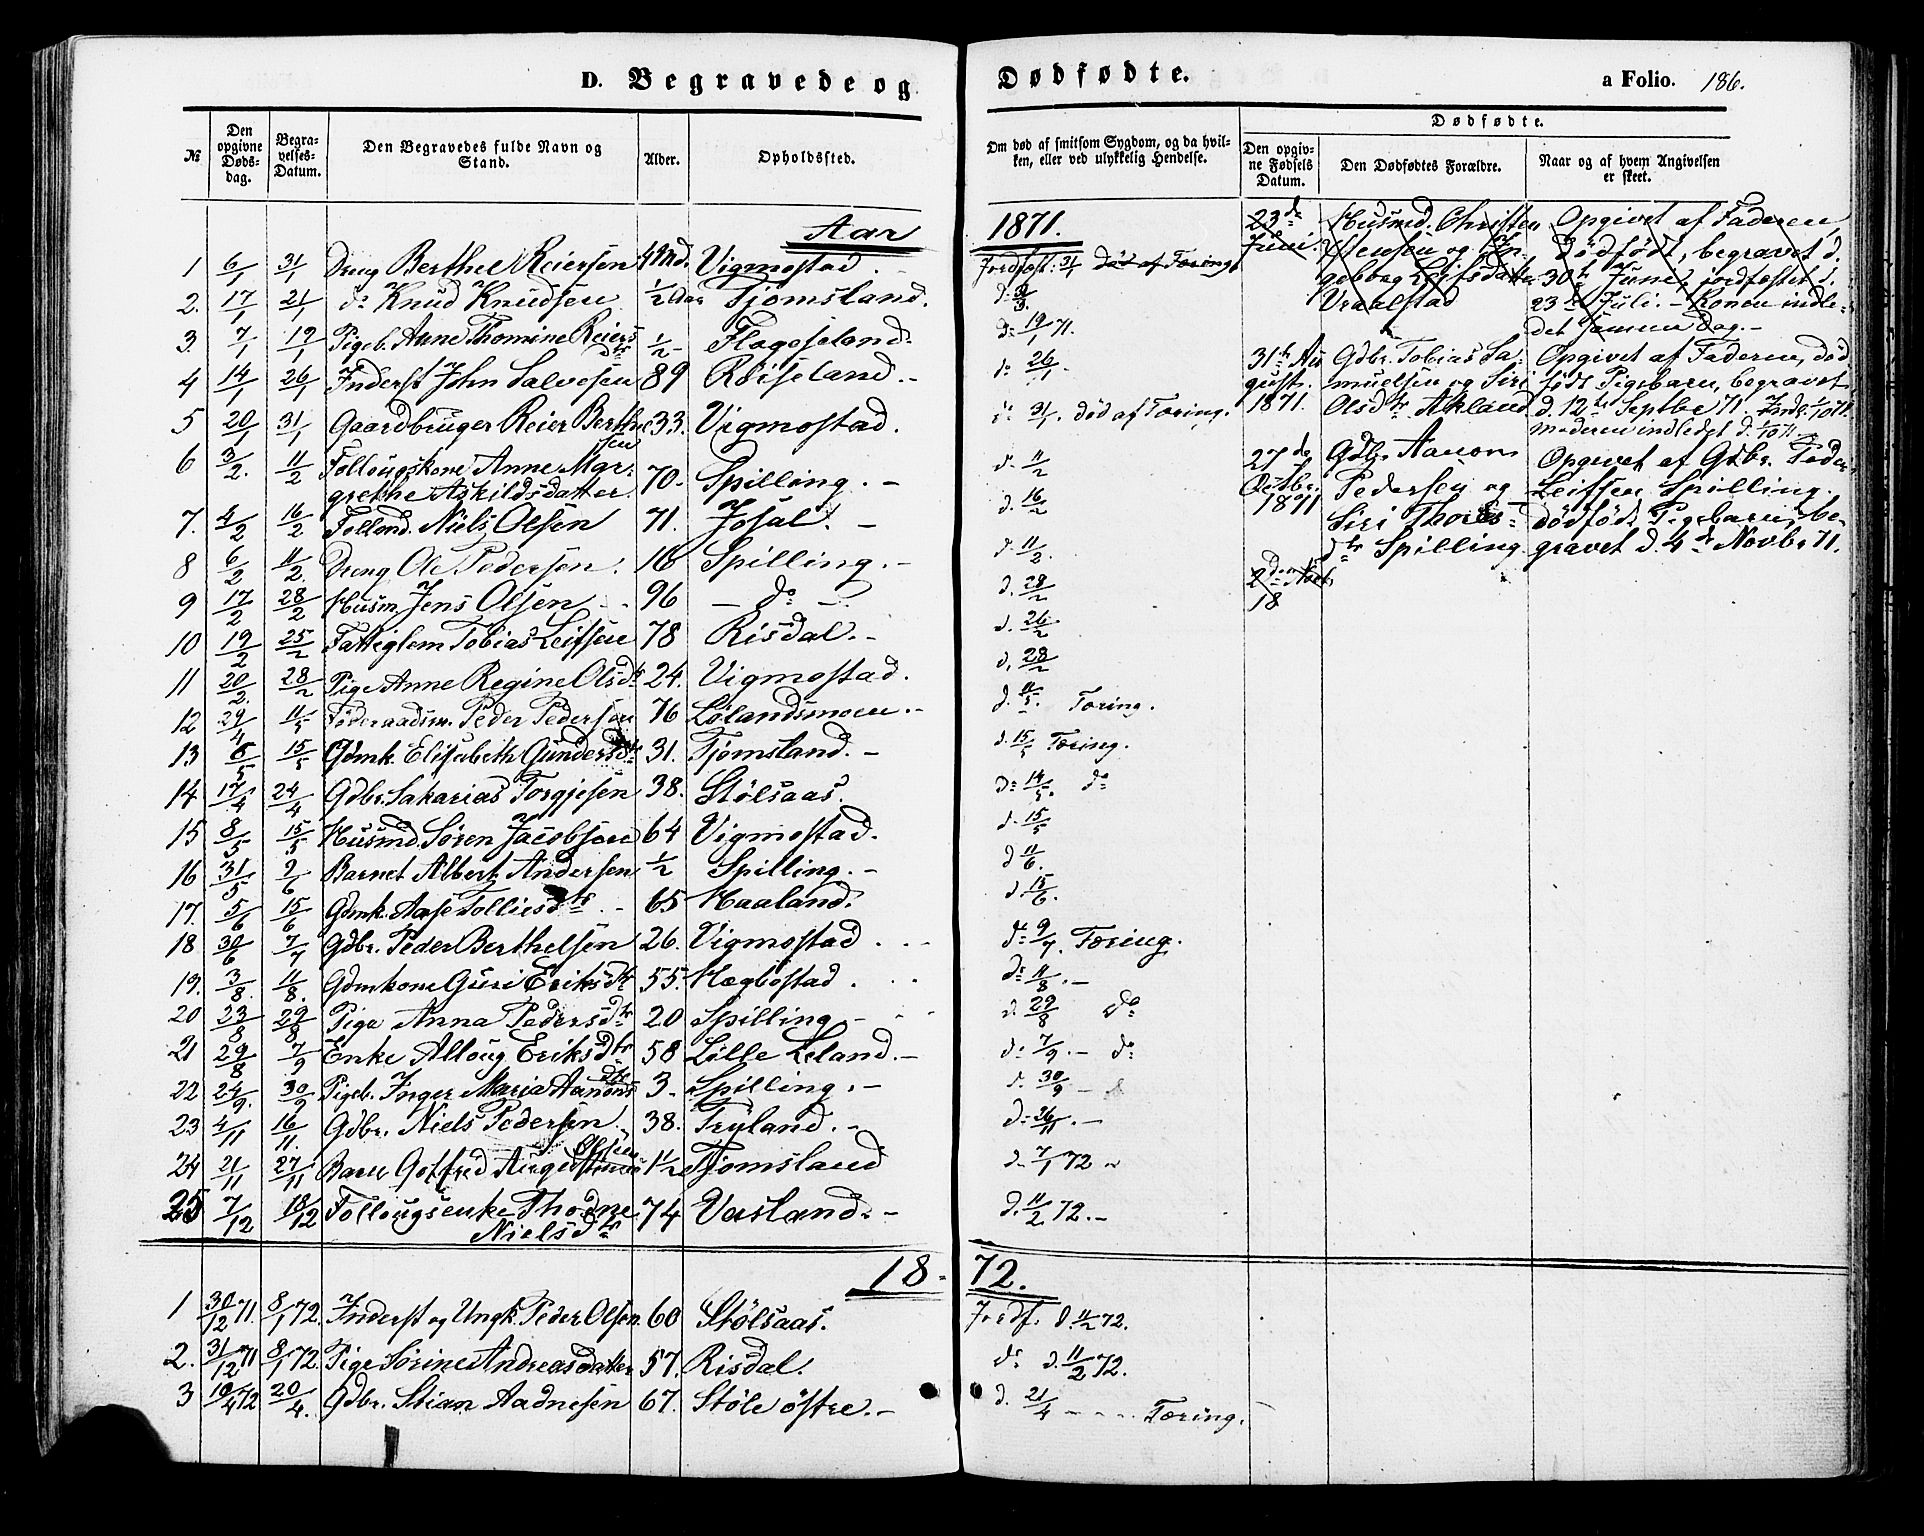 D. Begravede og Dødfødte. a Folio. 186.
№ Den opgivne Døds-dag. Begra-velses-Datum. Den Begravedes fulde Navn og Stand. Alder. Opholdssted. Om død af smitsom Sygdom, og da hvil-ken, eller ved ulykkelig Hendelse. Dødfødte. Den opgiv-ne Fødsels Datum. Den Dødfødtes Forældre. Naar og af hvem Angivelsen er skeet.
Aar 1871.
1 6/1 31/1 Dreng Berthel Reiersen Vigmostad. Jordfæst. 31/1 død af Tæring
2. 17/1 21/1 do Knud Knudsen 1/2 Tjomsland.
3. 7/1 19/1 Pigeb. Anne Thomine Reiers dtr 1/2 - Flageseland. do 19/1 71.
4 14/1 26/1 Inderst John Salvesen 89 Röiseland. - do 26/1 -
5 20/1 31/1 Gaardbruger Reier Berthel sen 33. Vigmostad. do 31/1. død af Tæring.
6 3/2. 11/2 Follougskone Anne Mgr-
grethe Askildsdatter. 70. Spilling. - d. 11/2
7. 4/2 16/2 Follond. Niels Olsen 71. Josal. - d. 16/2
8 6/2 11/2. Dreng Ole Pedersen. 16 Spilling. - d. 11/2.
9 17/2 28/2 Husm. Jens Olsen - 96 - do - d. 28/2
10 19/2 25/2 Fattiglem Tobias Leifsen 78 Risdal. - d. 26/2
11 20/2. 28/2 Pige Anne Regine Olsdtr 24. Vigmostad. d. 28/2
12 29/4 11/5 Föderaadsm. Peder Pedersen 76 Lølandsmoen. - d. 11/5. Tæring.
13 6/5 15/5 Gdmk. Elisabeth Gundersdtr 31. Tjomsland. - d. 15/5 Tæring.
14 17/4 24/4 Gdbr. Sakarias Torgjesen 38. Stølsaas. do 14/5. do
15 8/5 15/5 Husmd. Søren Jacobsen 64 Vigmostad. d. 15/5
16 31/5 9/6 Barnet Albert Andersen 1/2 Spilling. - d 11/6.
17. 5/6 15/6 Gdmk. Aase Tollisdtr - 65 Haaland. d. 15/6.
18 30/6 7/7 Gdbr. Peder Berthelsen 26. Vigmostad. do 9/7. Tæring.
19. 3/8. 11/8. Gdmkone Guri Eriksdtr 55. Hægbostad. do 11/8. -
20 23/8 29/8 Pige Anna Pedersdtr 20 Spilling - d. 29/8 do
21 29/8 7/9 Enke Alloug Eriksdtr 58 Lille Leland. - do 7/9. - do
22 24/9. 30/9 Pigeb. Inger Maria Aanons dtr 3. Spilling. - d. 30/9 -
23 4/11 16/11. Gdbr. Niels Pedersen. 38. Tryland. - do 26/11. -
24 21/11 27/11 Barn Gotfred Olsen 1 1/2 Tjomsland d. 7/1 72
25 7/12 18/12 Follougsenke Thorne
Nielsdtr 74 Vasland. - d. 11/2 72. -
1872.
1 30/12 71. 8/1 72. Inderst og Ungk. Peder Olsen 60 Stølsaas. Jordf. d. 11/2 72.
2. 31/12 71 8/1 72. Pige Sørine Andreasdatter 57. Risdal. do d. 11/2 72.
3 10/4 72 20/4. Gdbr. Stian Aadnesen 67. Støle östre. - d. 21/4 - - - Tæring.
23de Juni. Husmd. Christen
Stensen og In-
geborg Leifsdatter
Vraalstad
Opgivet af Faderen,
Dödfödt, begravet d.
30te Juni, jordfæstet d.
23de Juli. - Konen indle-
det samme Dag. -
31te Au
gust.
1871.
Gdbr. Tobias Sa-
muelsen og Siri
Olsdtr Akland
Opgivet af Faderen, död
födt Pigebarn, begravet
d. 12te Septbr 71.
Moderen indledet d. 1/10 71.
27de
Octbr.
1871
Gdbr. Aanon
Pedersen og
Siri Thores-
dtr Spilling.
Opgivet af Gdbr. Peder
Leifsen Spilling.
dödfödt Pigebarn, be-
gravet d. 4de Novbr 71.
2den
18